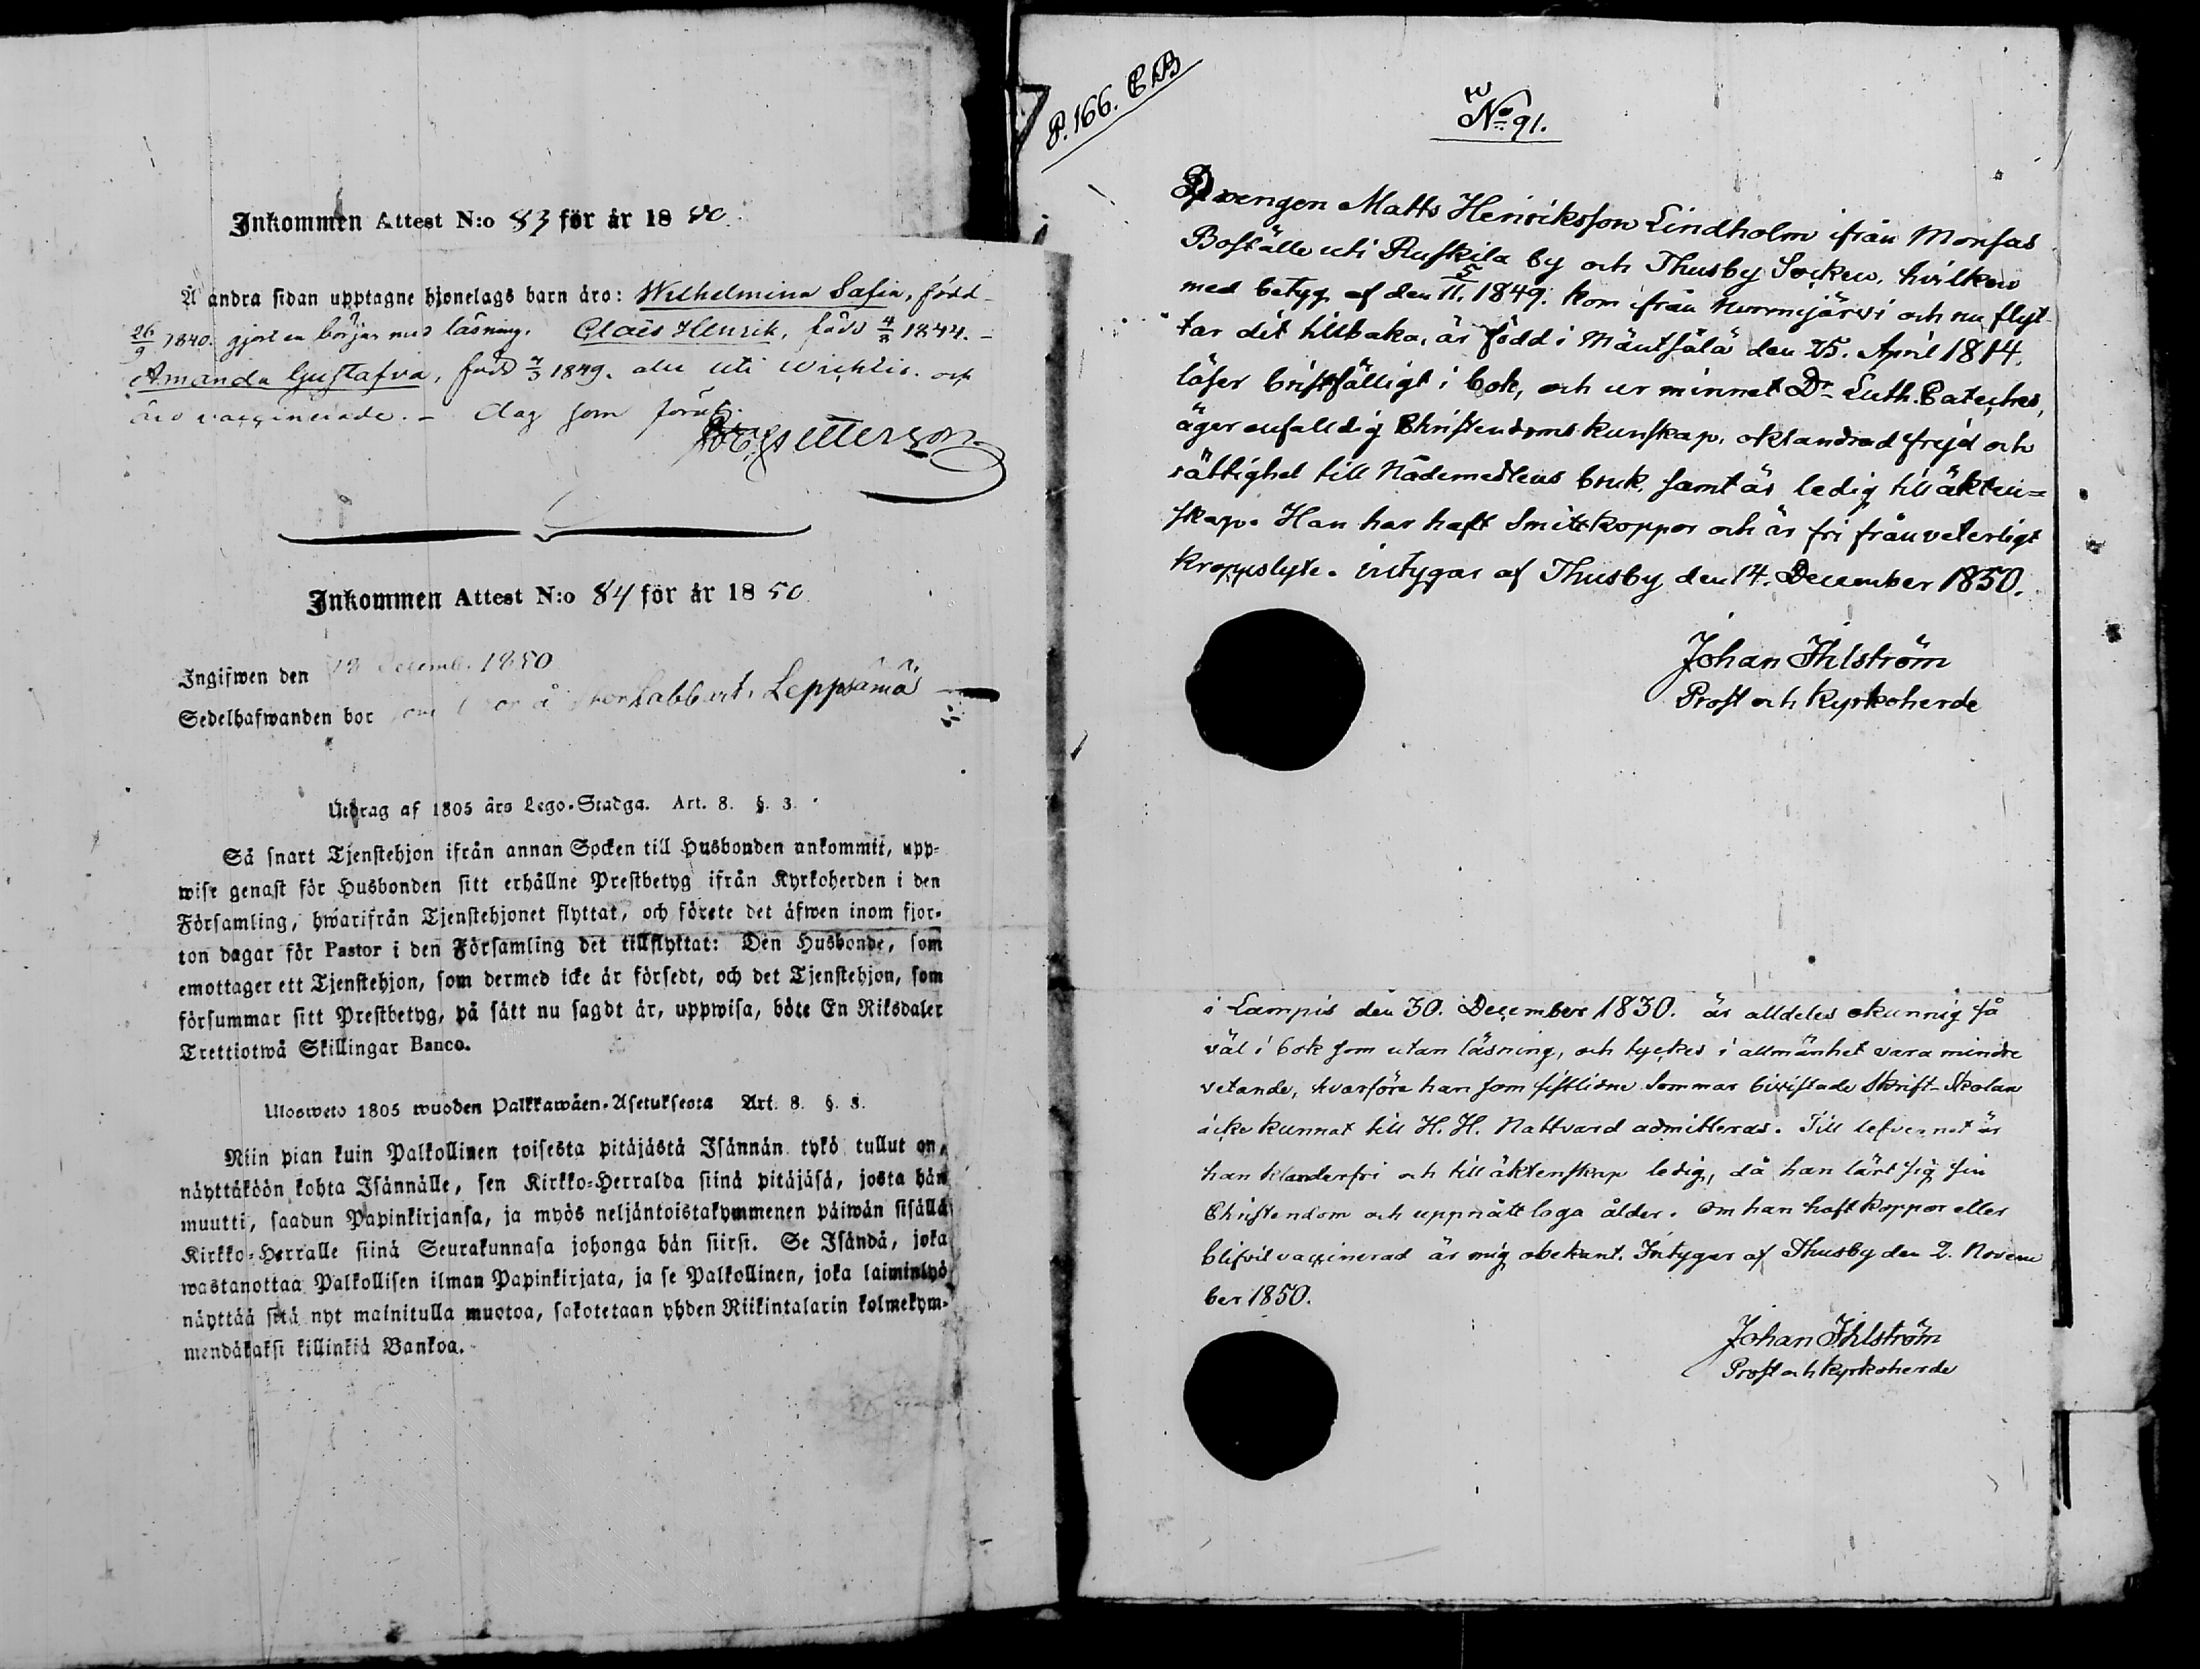 Inkommen Attest N:o 83 för år 1850.
Å andra sidan upptagne hjonelags barn äro: Wilhelmina Safia, född
26/9 1840. gjort en början med läsning. Claës Henrik, född 4/8 1844. -
Amanda Gustafva, född 4/3 1849. alla uti Wichtis och
äro vaccinerade. - dag som förut.
Inkommen Attest N:o 84 för år 1850
Ingifwen den 18 Decemb. 1850
Sedelhafwanden bor Storlabbart, Leppsämä
Utdrag af 1805 års Lego-Stadga. Art. 8. §. 3.
Så snart Tjenstehjon ifrån annan Socken till Husbonden ankommit, upp-
wise genast för Husbonden sitt erhållne Prestbetyg ifrån Kyrkoherden i den
Församling, hwarifrån Tjenstehjonet flyttat, och förete det äfwen inom fjor-
ton dagar för Pastor i den Församling det tillflyttat: Den Husbonde, som
emottager ett Tjenstehjon, som dermed icke är försedt, och det Tjenstehjon, som
försummar sitt Prestbetyg, på sätt nu sagdt är, uppwisa, böte En Riksdaler
Trettiotwå Skillingar Banco.
Ulosweto 1805 wuoden Palkkawäen-Asetuksesta Art. 8. §. 3.
Niin pian kuin Palkollinen toisesta pitäjästä Isännän tykö tullut on,
näyttäköön kohta Isännälle, sen Kirkko-Herralda siinä pitäjäsä, josta hän
muutti, saadun Papinkirjansa, ja myös neljäntoistakymmenen päiwän sisällä
Kirkko-Herralle siinä Seurakunnasa johonga hän siirsi. Se Isändä, joka
wastanottaa Palkollisen ilman Papinkirjata, ja se Palkollinen, joka laiminlyö
näyttää sitä nyt mainitulla muotoa, sakotetaan yhden Riikintalarin kolmekym-
mendäkaksi killinkiä Bankoa.
P. 166. C.B
No 91.
Drengen Matts Henriksson Lindholm ifrån Monsas
Boställe uti Ruskila by och Thusby Socken, hvilken
med betyg af den 5/11. 1849. kom ifrån Nurmijärvi och nu flyt-
tar dit tillbaka, är född i Mäntsälä den 25. April 1814.
läser bristfälligt i bok, och ur minnet Dr Luth. Cateches,
äger enfalldig Christendoms kunskap, oklandrad frejd och
rättighet till Nådemedlens bruk, samt är ledig till äkten=
skap. Han har haft Smittkoppor och är fri från veterligt
kroppslyte. intygar af Thusby den 14. December 1850.
Johan Ihlström
Prost och Kyrkoherde
i Lampis den 30. December 1830. är alldeles okunnig så
väl i bok som utan läsning, och tyckes i allmänhet vara mindre
vetande, hvarföre han som sistlidne Sommar bivistade Skrift-Skolan
icke kunnat till H. H. Nattvard admitteras. Till lefvernet är
han klanderfri och till äktenskap ledig, då han lärt sig sin
Christendom och uppnått laga ålder. Om han haft koppor eller
blifvit vaccinerad är mig obekant. Intygar af Thusby den 2. Novem
ber 1850.
Johan Ihlström
Prost och Kyrkoherde